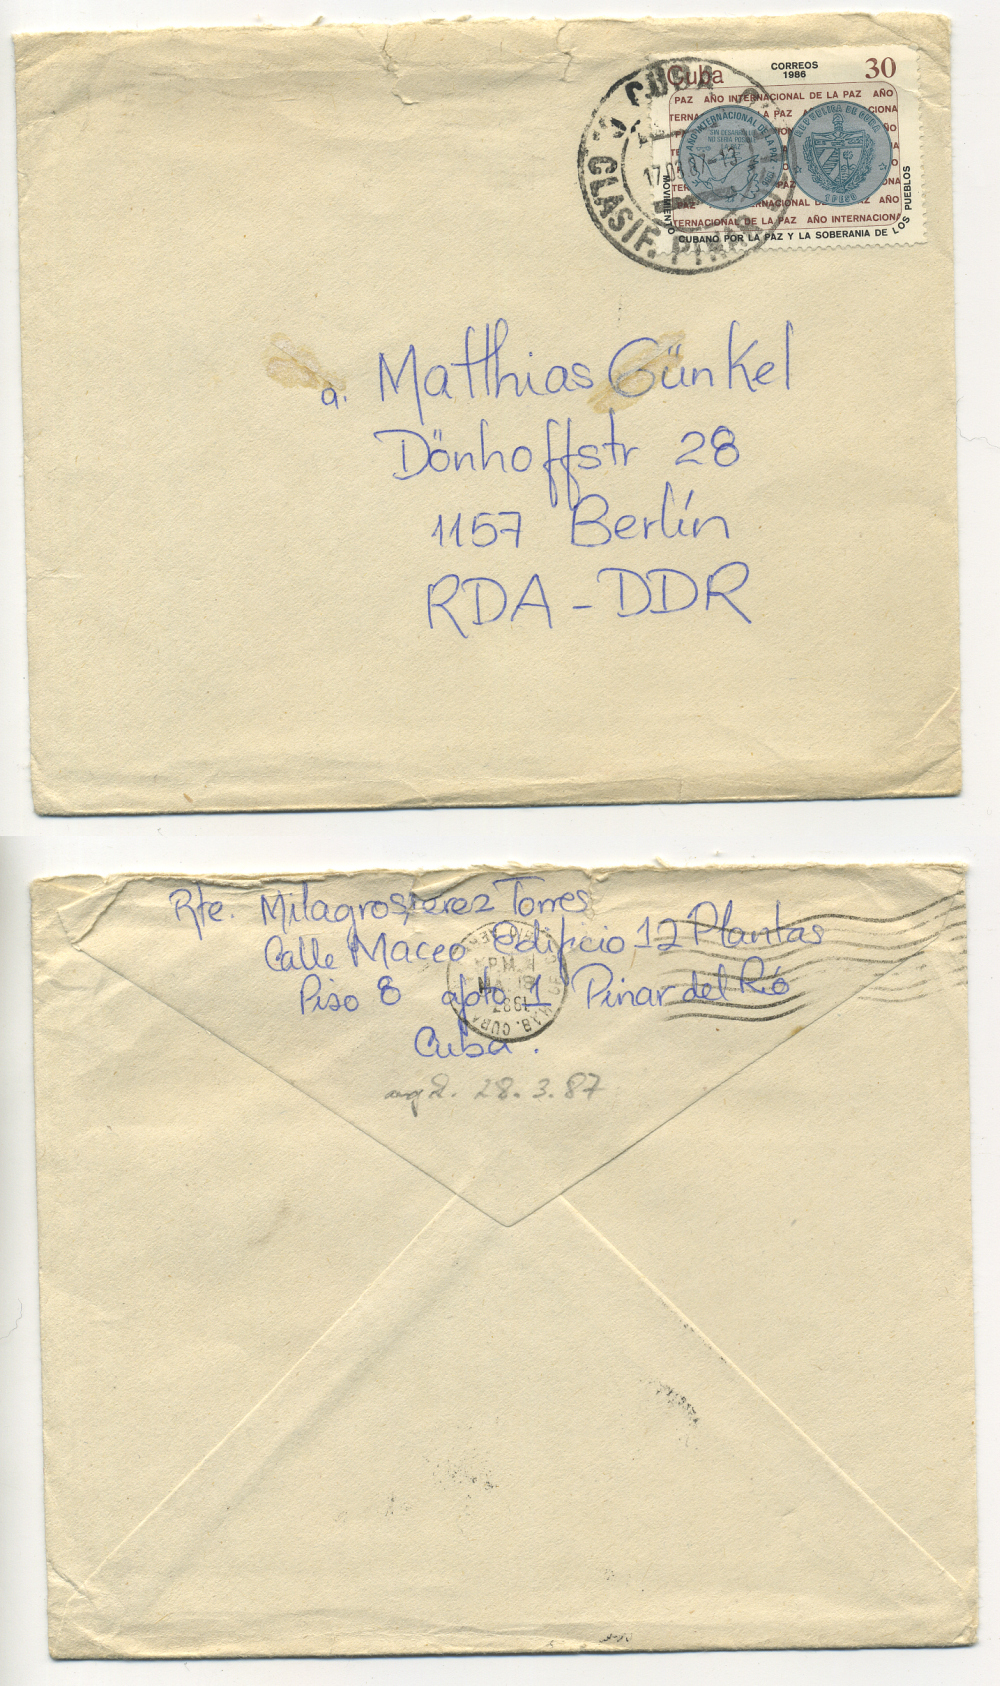 Cuba CORREOS 1986 30
PAZ AÑO INTERNACIONAL DE LA PAZ AÑO
AÑO INTERNACIONAL DE LA PAZ
SIN DESARROLLO
NO SERA POSIBLE
REPUBLICA DE CUBA
1 PESO
TERNACIONAL DE LA PAZ AÑO INTERNACIONA
MOVIMIENTO CUBANO POR LA PAZ Y LA SOBERANIA DE LOS PUEBLOS
CUBA
CLASIF. PINAR
a. Matthias Günkel
Dönhoffstr 28
1157 Berlín
RDA - DDR
Rte. Milagros Perez Torres
Calle Maceo Edificio 12 Plantas
Piso 8 apto 1 Pinar del Río
Cuba.
28.3.87
P.M.
1987
HAB. CUBA